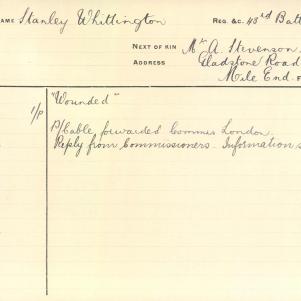 NAME Stanley Whittington REG. &C. 43rd Batt
NEXT OF KIN Mrs A. Stevenson
ADDRESS Gladstone Road
Mile End
"Wounded"
1/P P/Cable forwarded Commis London.
Reply from Commissioners. Information